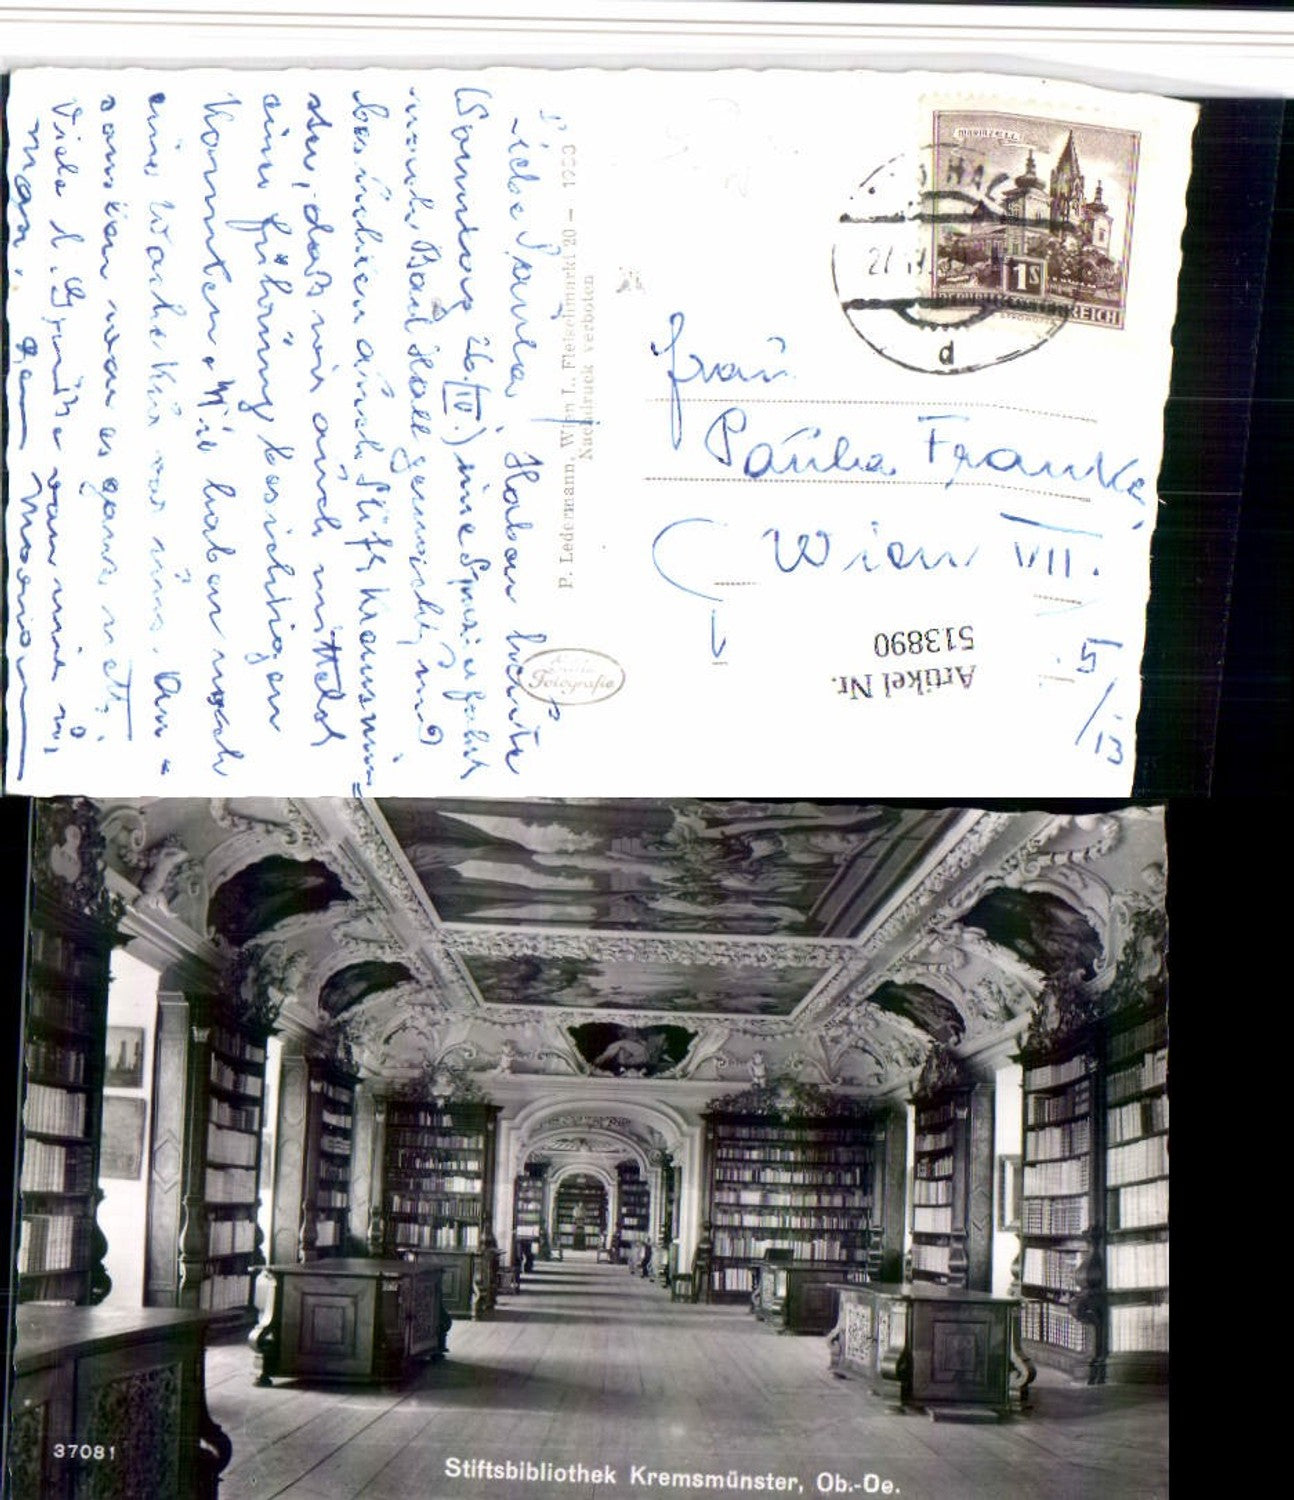 Liebe Paula! Haben heute
(Sonntag 26./IV.) eine Spazierfahrt
nach Bad Hall gemacht, und
besuchten auch Stift Kremsmün=
ster, das wir auch mittels
einer Führung besichtigen
konnten. Wir haben noch
eine Woche Kur vor uns. An-
sonsten war es ganz nett.
Viele l. Grüße von mir u.
P. Ledermann, Wien I., Fleischmarkt 20 —
Nachdruck verboten
Echte
Fotografie
MARIAZELL
1S
REPUBLIK ÖSTERREICH
d
Frau
Paula Franke
Wien VII.
Artikel Nr.
513890
37081
Stiftsbibliothek Kremsmünster, Ob.-Oe.